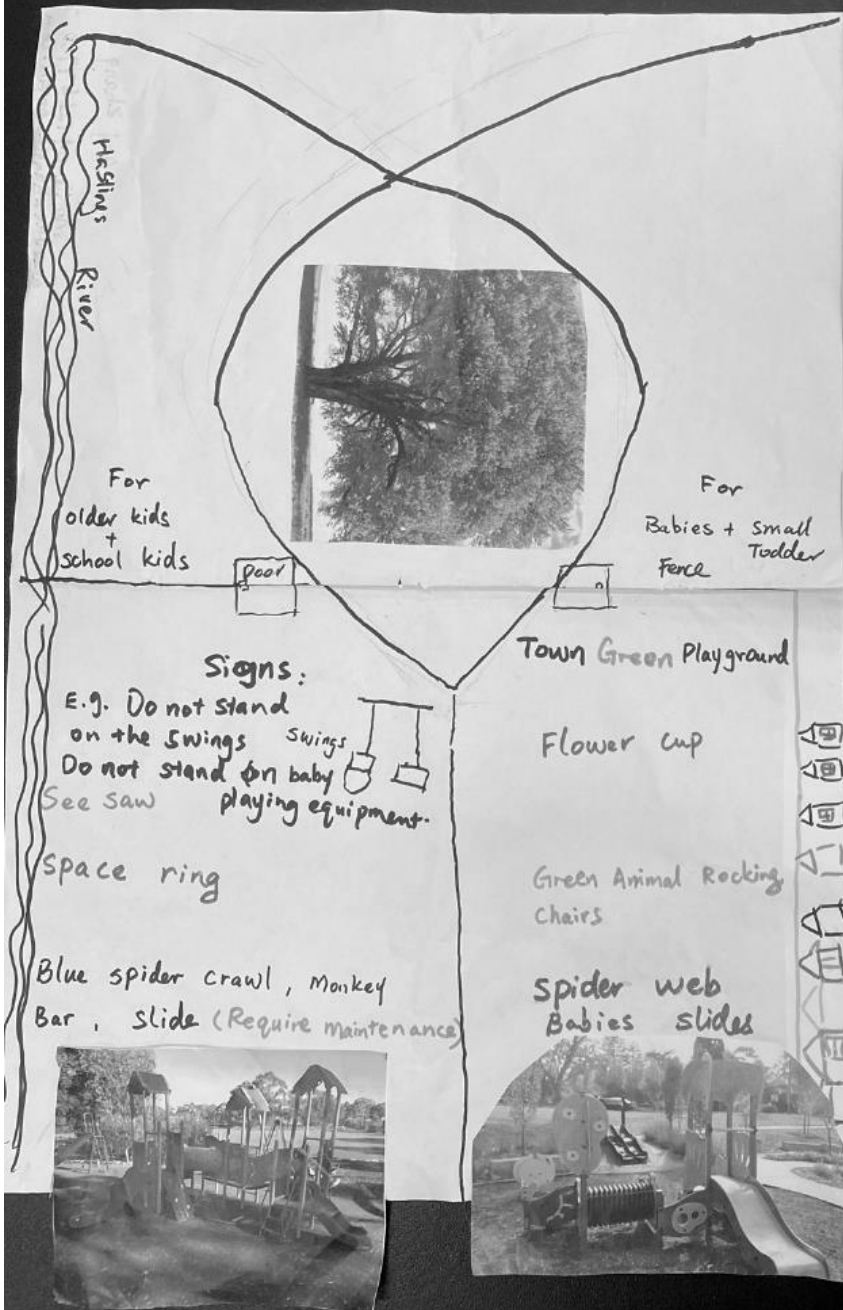 Hastings
River
For
older kids
+
school kids
Door
For
Babies + Small
Todder
Fence
Town Green Playground
Signs:
E.g. Do not stand
on the swings
Swings
Do not stand on baby
playing equipment.
See saw
Space ring
Blue spider crawl, Monkey
Bar, slide (Require maintenance)
Flower cup
Green Animal Rocking
Chairs
Spider web
Babies slides